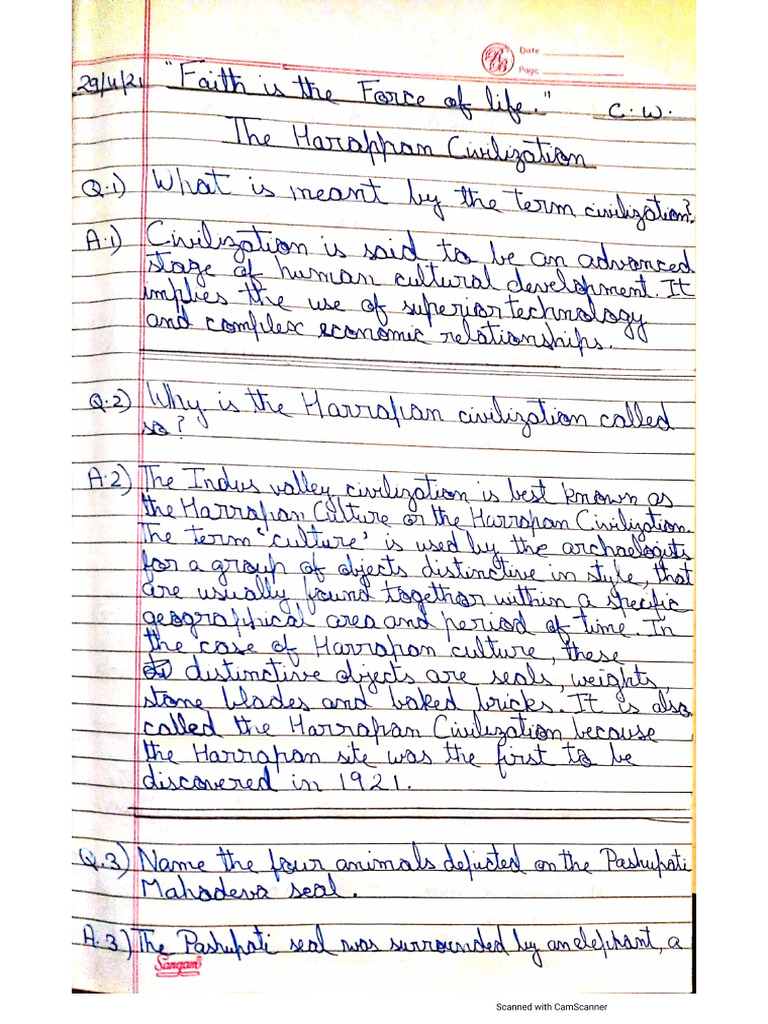 Date
Page
29/4/21 "Faith is the Force of life." C.W.
The Harappan Civilization
Q.1) What is meant by the term civilization?
A.1) Civilization is said to be an advanced
stage of human cultural development. It
implies the use of superior technology
and complex economic relationships.
Q.2) Why is the Harrapan civilization called
so?
A.2) The Indus valley civilization is best known as
the Harrapan Culture or the Harrapan Civilization.
The term 'culture' is used by the archaelogists
for a group of objects distinctive in style, that
are usually found together within a specific
geographical area and period of time. In
the case of Harrapan culture, these
distinctive objects are seals, weights,
stone blades and baked bricks. It is also
called the Harrapan Civilization because
the Harrapan site was the first to be
discovered in 1921.
Q.3) Name the four animals depicted on the Pashupati
Mahadeva seal.
A.3) The Pashupati seal was surrounded by an elephant, a
Sangam
Scanned with CamScanner